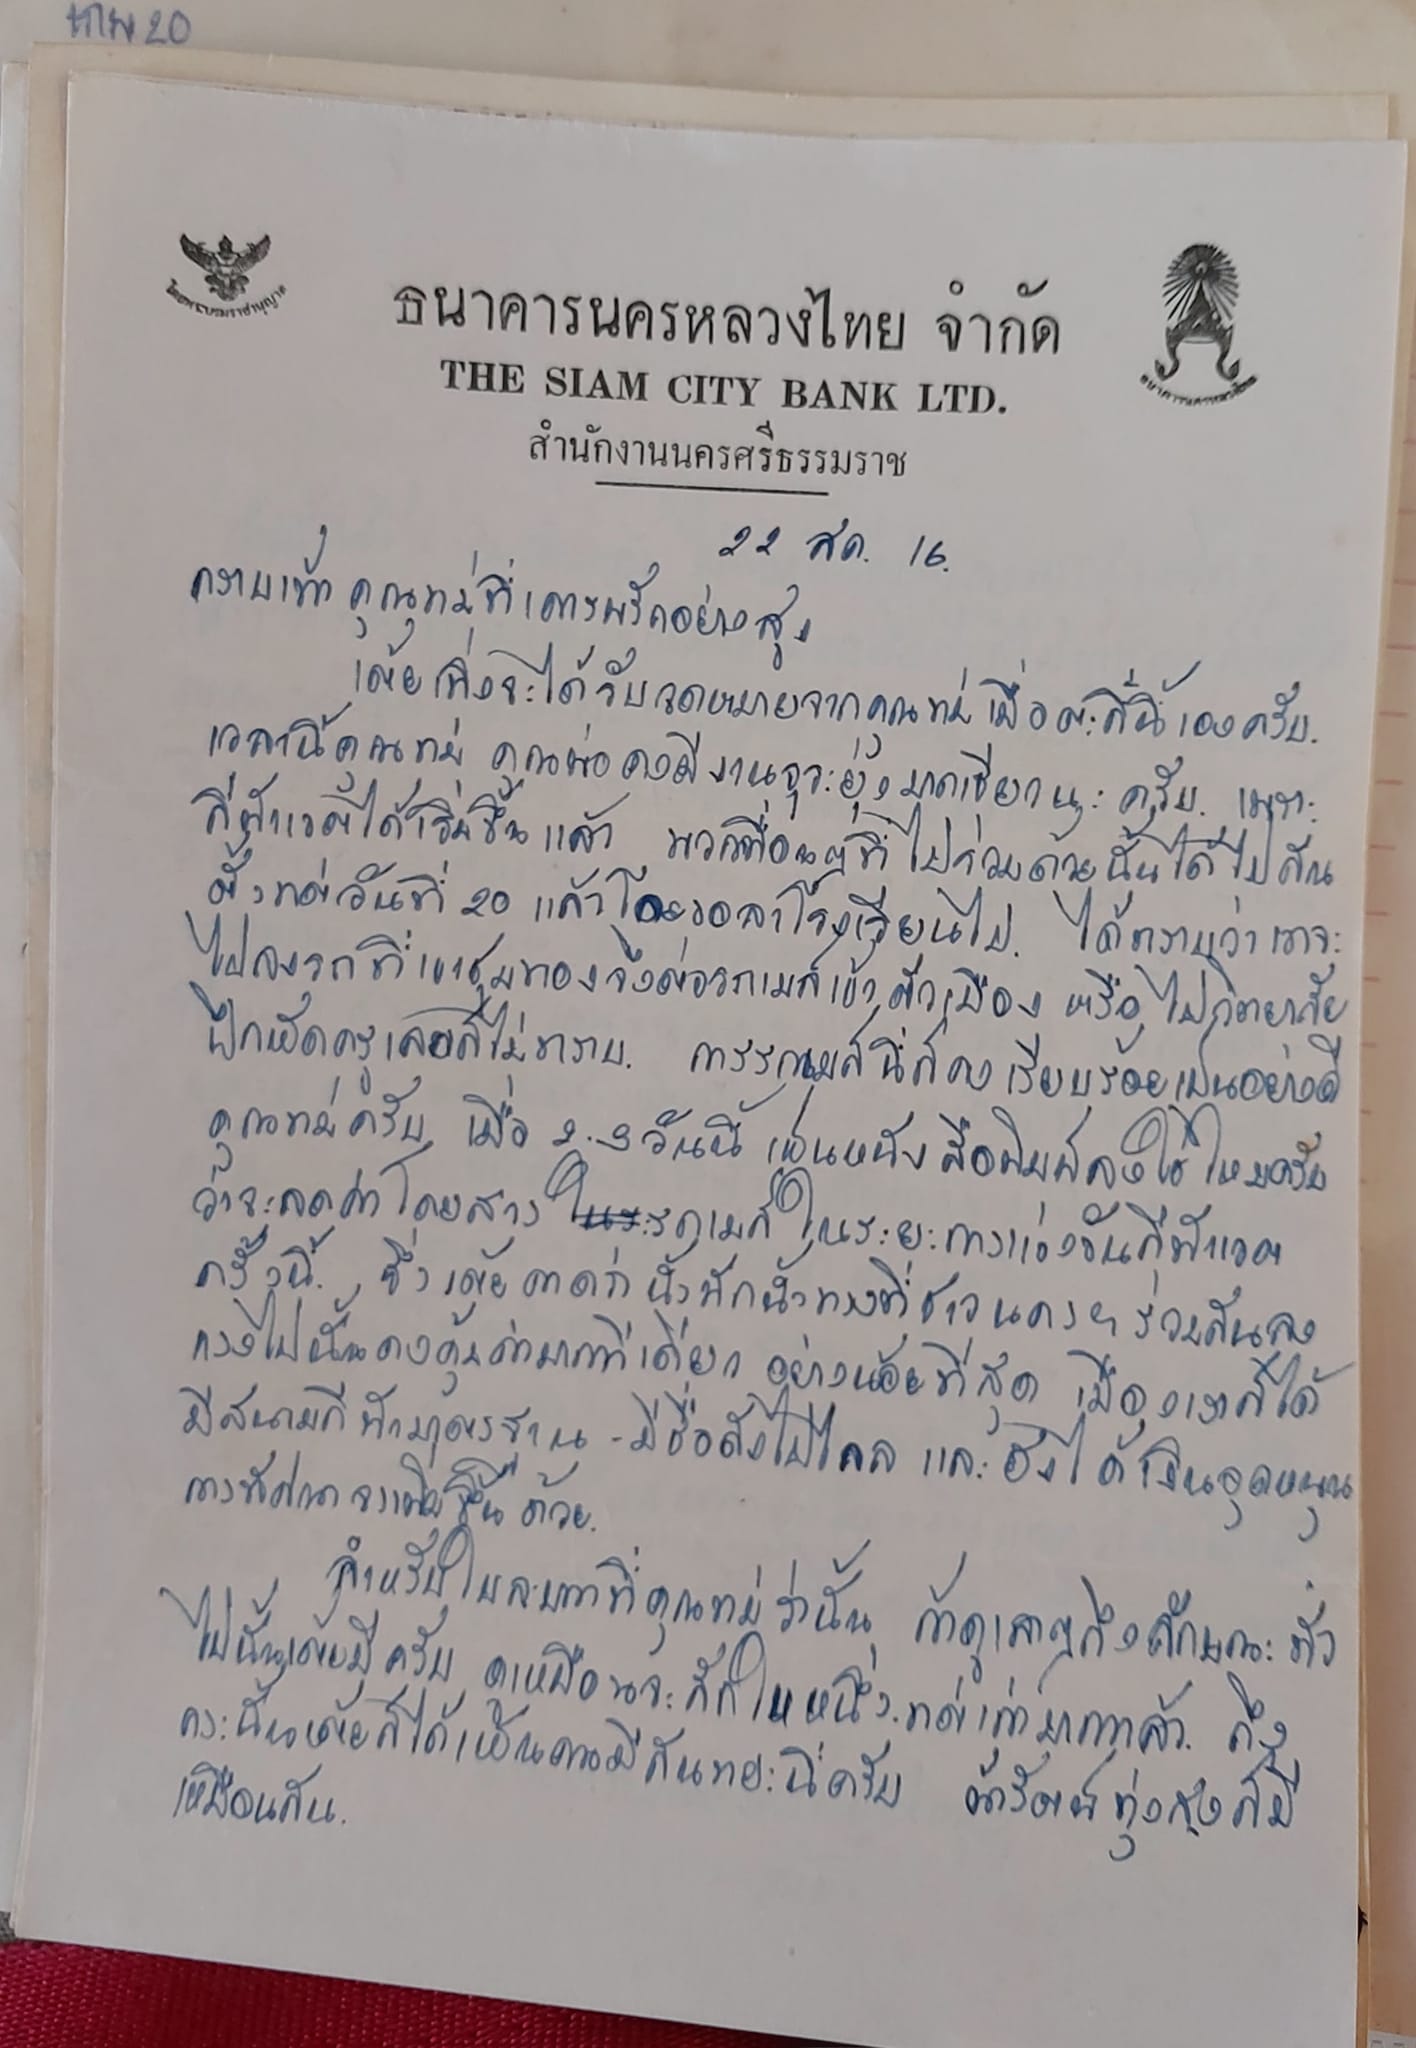 เทพ 20
โดยพระบรมราชานุญาต
ธนาคารนครหลวงไทย จำกัด
THE SIAM CITY BANK LTD.
สำนักงานนครศรีธรรมราช
22 สค. 16.
กราบเท้า คุณแม่ที่เคารพรักอย่างสูง
เพิ่งจะได้รับจดหมายจากคุณแม่เมื่อตะกี้นี้เองครับ.
เวลานี้คุณแม่ คุณพ่อคงมีงานธุระยุ่งมากเชียวนะครับ. เพราะ
กีฬาเขตได้เริ่มขึ้นแล้ว พวกเพื่อนๆที่ไปร่วมด้วยนั้นได้ไปกัน
ตั้งแต่วันที่ 20 แล้วโดยขอลาโรงเรียนไป. ได้ทราบว่าเขาจะ
ไปลงรถที่เขาชุมทองจึงต่อรถเมล์เข้าตัวเมือง หรือไปวิทยาลัย
ฝึกหัดครูเลยก็ไม่ทราบ. การรถเมล์นี่ก็คงเรียบร้อยเป็นอย่างดี
คุณแม่ครับ เมื่อ 2-3 วันนี้ เห็นหนังสือพิมพ์ลงใช่ไหมครับ
ว่าจะลดค่าโดยสาร รถเมล์ในระยะการแข่งขันกีฬาเขต
ครั้งนี้. ซึ่ง คาดว่า ที่ชาวนครฯร่วมกันลง
แรงไปนั้นคงคุ้มค่ามากทีเดียว อย่างน้อยที่สุด เมืองเราก็ได้
มีสนามกีฬามาตรฐาน - มีชื่อดังไปไกล และยังได้เงินอุดหนุน
การพัฒนา เพิ่มขึ้นด้วย.
สำหรับใบละบาทที่คุณแม่ว่านั้น ถ้าดูเลาๆถึงลักษณะทั่ว
ไปนั้น มีครับ ดูเหมือนจะสักใบหนึ่ง.แต่เก่ามากแล้ว. ถึง
กระนั้น ก็ได้เห็น
เหมือนกัน.